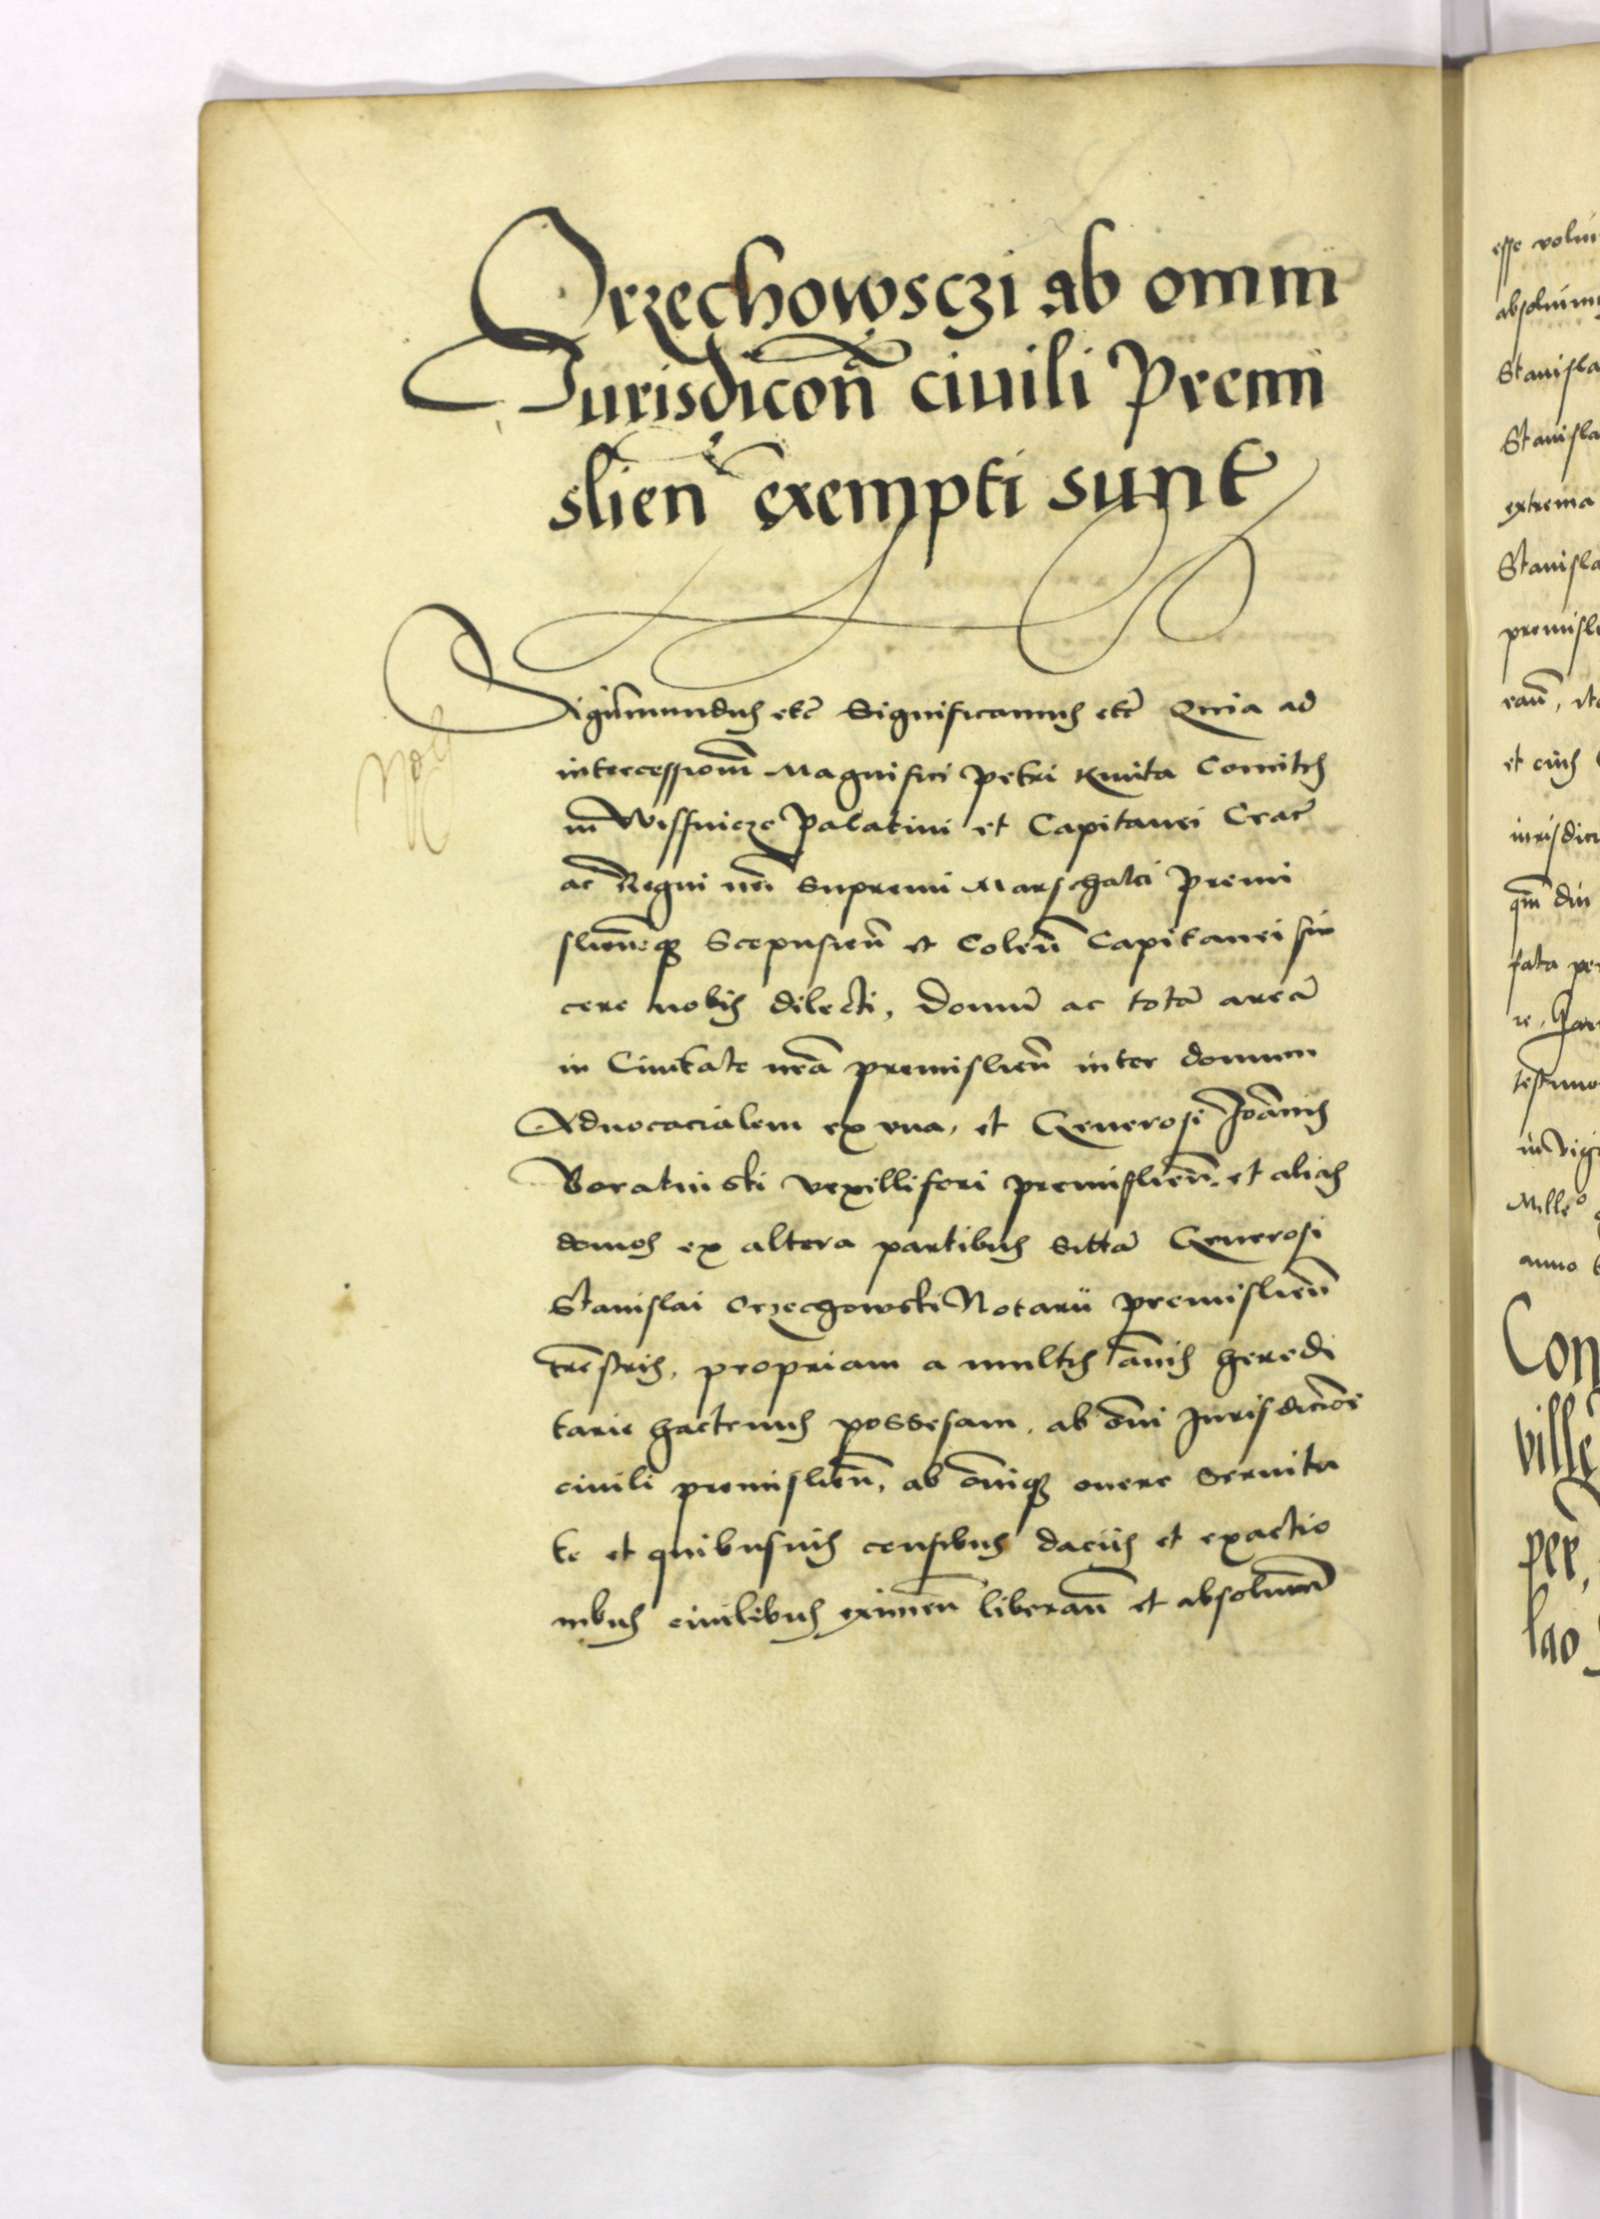 Orzechowsczi ab omni
Iurisdicoñ ciuili Premi
slien̄ exempti sunt
Sigismundus etc̄ Significamus etc̄ Quia ad
intercessionem̄ Magnifici Petri Kmita Comitis
in Wissnicze Palatini et Capitanei Crac̄
ac Regni nr̄i Supremi Marschalci Premi
slieñeq Scepusień et Coleń Capitanei sin
cere nobis dilecti, Domū ac totā areā
in Ciuitate nr̄a premislień inter domum
Aduocacialem ex vna, et Generosi Joānnis
Boratinski vexilliferi premislień et alias
domos ex altera partibus sittā Generosi
Stanislai Orzechowski Notarii premislień
trēstris, propriam a multis ānis heredi
tarie hactenus possesam, ab ōmi Jurisdicōe
ciuili premislień, ab ōmiq onere seruitu
te et quibusuis censibus daciis et exactio
nibus ciuilibus eximeń liberań et absoluim̄
esse volui
Stanisla
Stanisla
extrema
Stanisla
premisli
et eius
iurisdici
fata per
testimo
in vigi
Mill̄o
anno
Con
ville
per,
lao